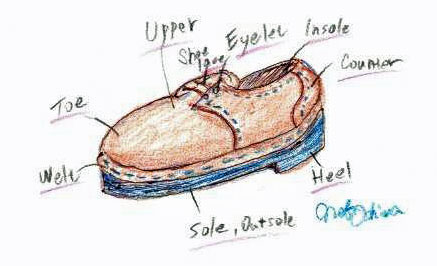 Upper
Shoe
lace
Eyelet
Insole
Counter
Toe
Welt
Heel
Sole, Outsole